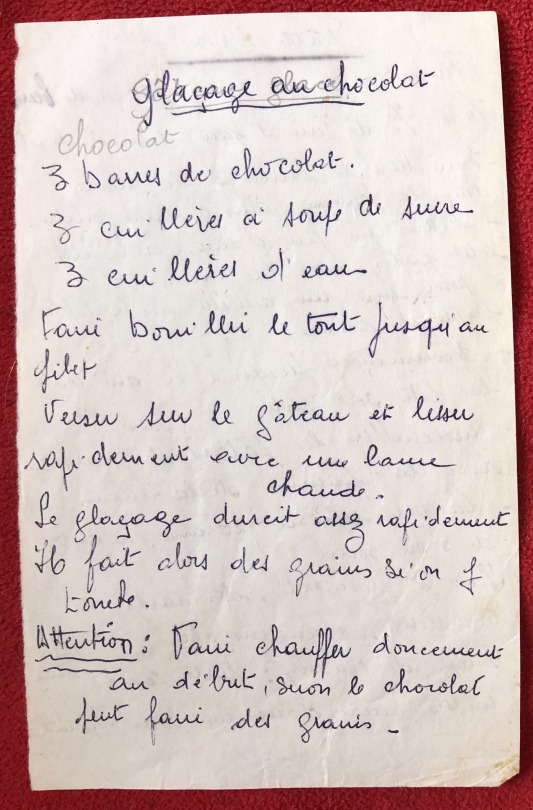 Glaçage au chocolat
chocolat
3 barres de chocolat.
3 cuillères à soupe de sucre
3 cuillères d'eau
Faire bouillir le tout jusqu'au
filet
Verser sur le gâteau et lisser
rapidement avec une lame
chaude.
Le glaçage durcit assez rapidement
Il fait alors des grains si on y
touche.
Attention : Faire chauffer doucement
au début, sinon le chocolat
peut faire des grains -